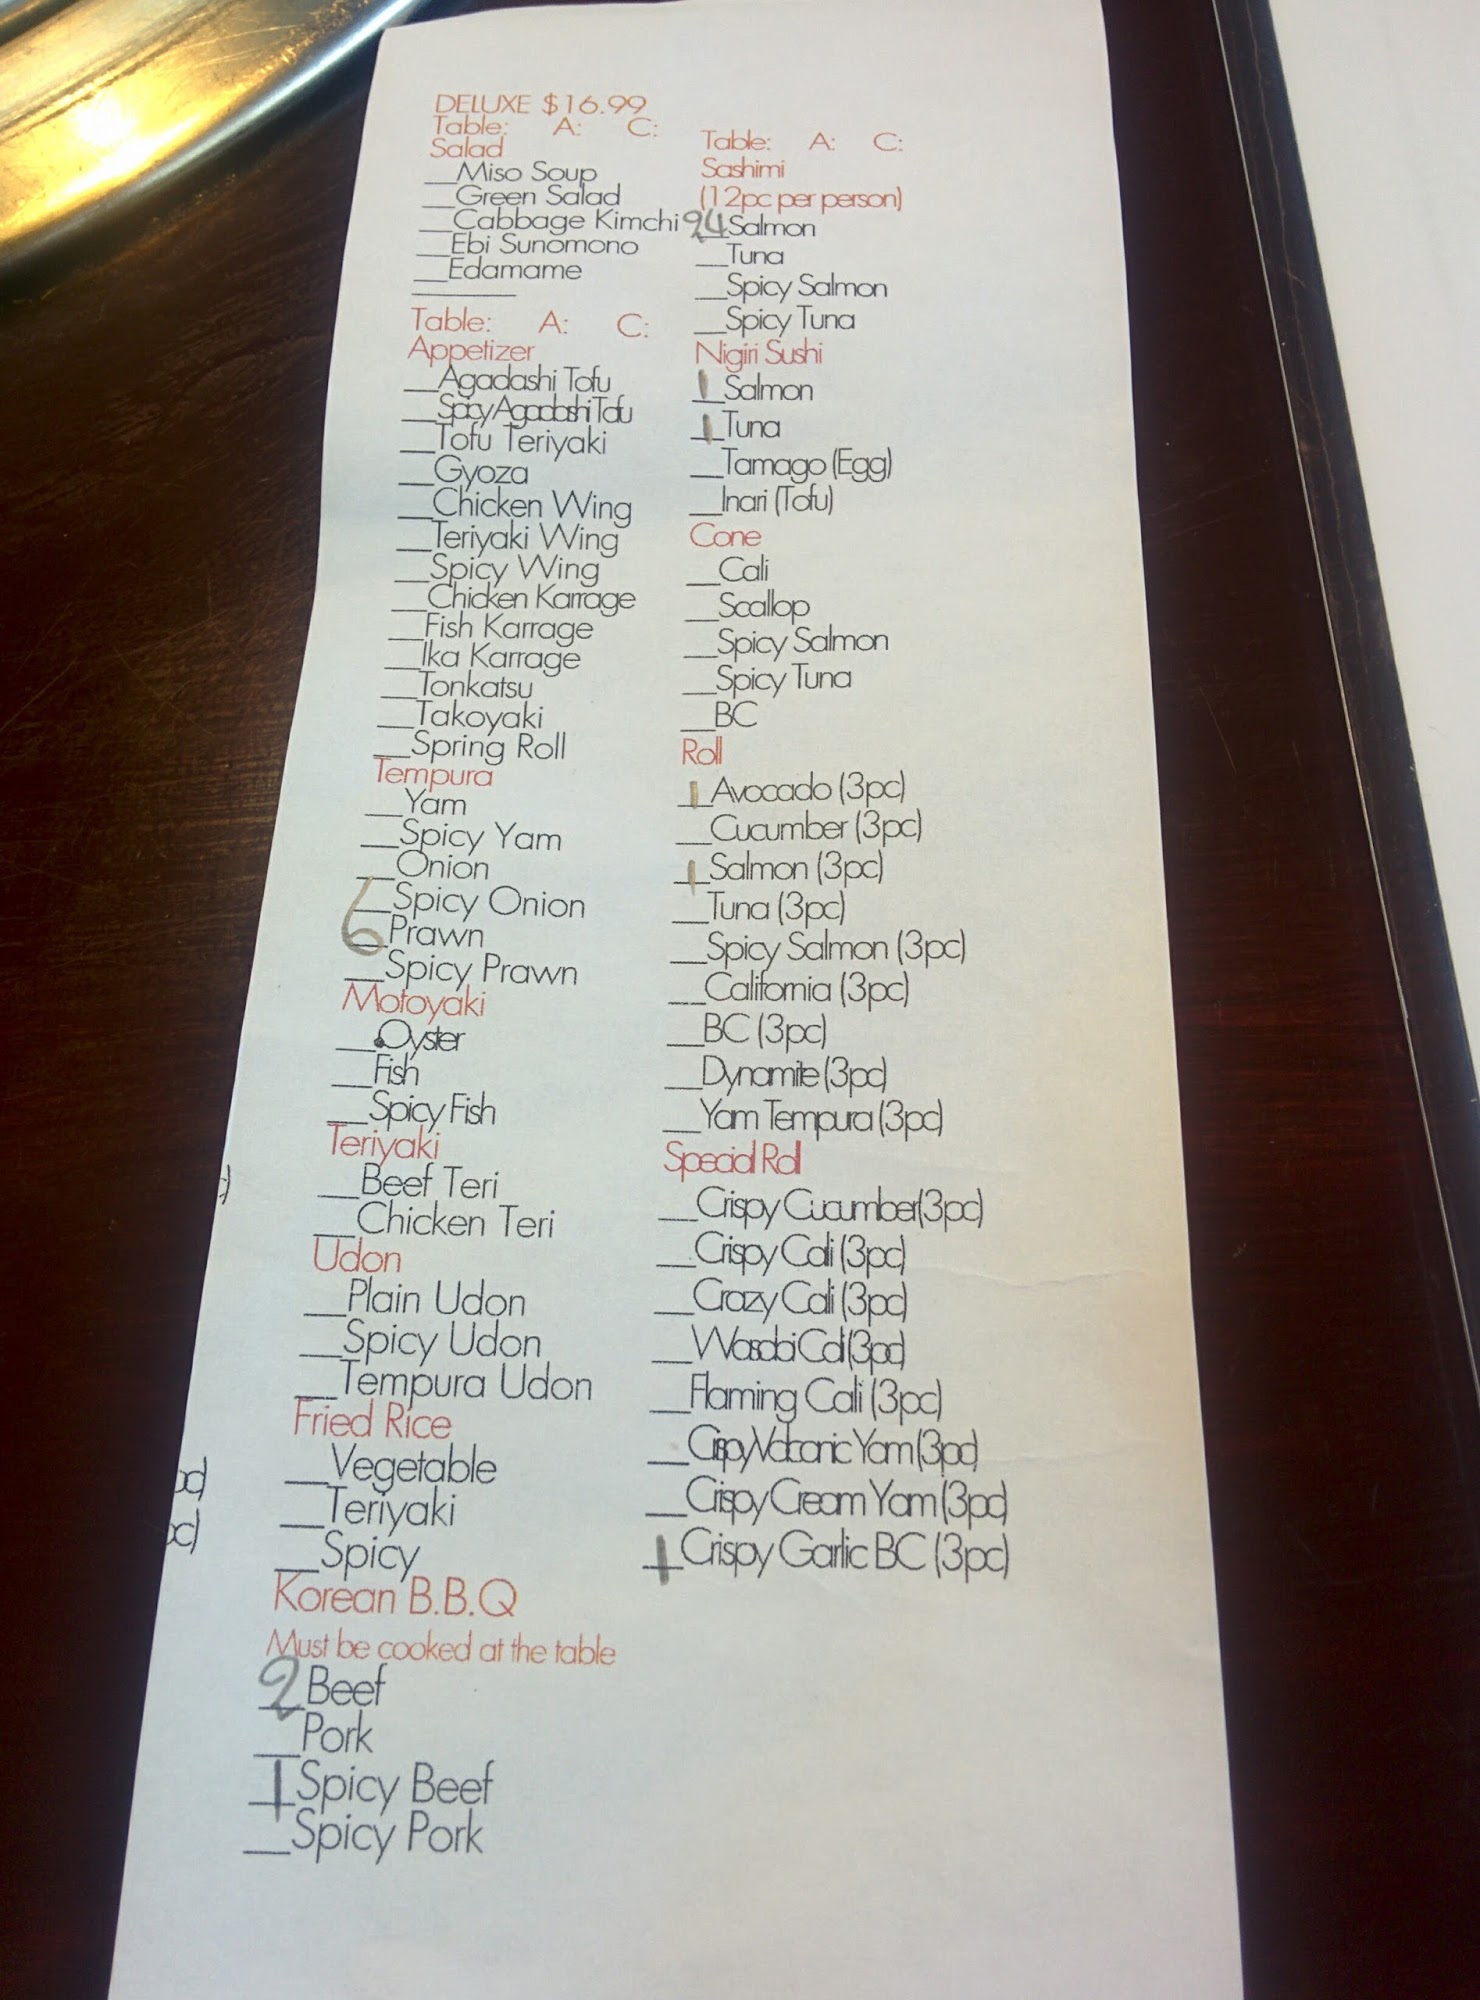 DELUXE $16.99
Table: A: C:
Salad
__Miso Soup
__Green Salad
__Cabbage Kimchi
__Ebi Sunomono
__Edamame
Table: A: C:
Appetizer
__Agadashi Tofu
__Spicy Agadashi Tofu
__Tofu Teriyaki
__Gyoza
__Chicken Wing
__Teriyaki Wing
__Spicy Wing
__Chicken Karrage
__Fish Karrage
__Ika Karrage
__Tonkatsu
__Takoyaki
__Spring Roll
Tempura
__Yam
__Spicy Yam
__Onion
__Spicy Onion
6 Prawn
__Spicy Prawn
Motoyaki
__Oyster
__Fish
__Spicy Fish
Teriyaki
__Beef Teri
__Chicken Teri
Udon
__Plain Udon
__Spicy Udon
__Tempura Udon
Fried Rice
__Vegetable
__Teriyaki
__Spicy
Korean B.B.Q
Must be cooked at the table
2 Beef
__Pork
1 Spicy Beef
__Spicy Pork
Table: A: C:
Sashimi
(12pc per person)
24 Salmon
__Tuna
__Spicy Salmon
__Spicy Tuna
Nigiri Sushi
1 Salmon
1 Tuna
__Tamago (Egg)
__Inari (Tofu)
Cone
__Cali
__Scallop
__Spicy Salmon
__Spicy Tuna
__BC
Roll
1 Avocado (3pc)
__Cucumber (3pc)
1 Salmon (3pc)
__Tuna (3pc)
__Spicy Salmon (3pc)
__California (3pc)
__BC (3pc)
__Dynamite (3pc)
__Yam Tempura (3pc)
Special Roll
__Crispy Cucumber(3pc)
__Crispy Cali (3pc)
__Crazy Cali (3pc)
__Wasabi Cali (3pc)
__Flaming Cali (3pc)
__Crispy Volcanic Yam (3pc)
__Crispy Cream Yam (3pc)
1 Crispy Garlic BC (3pc)